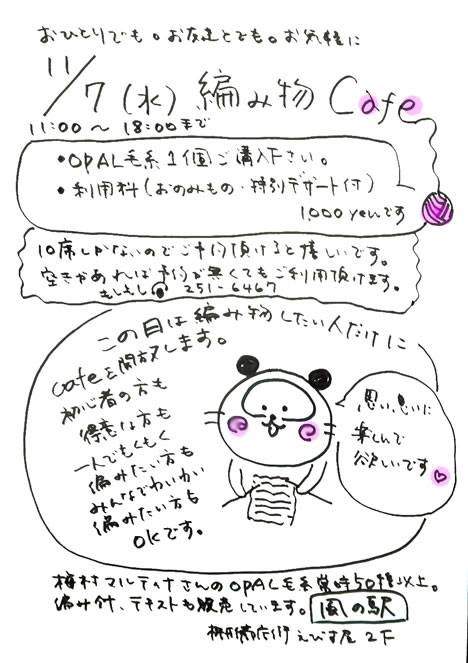 おひとりでも。お友達とでも。お気軽に
11/7（水）編み物 Cafe
11:00～18:00まで
・OPAL毛糸1個ご購入下さい。
・利用料（おのみもの・特別デザート付）
1000yenです
10席しかないのでご予約頂けると嬉しいです。
空きがあれば予約が無くてもご利用頂けます。
もしもし 251-6467
この日は編み物したい人だけに
cafeを開放します。
初心者の方も
得意な方も
一人でもくもく
編みたい方も
みんなでわいわい
編みたい方も
OKです。
思い思いに
楽しんで
欲しいです
梅村マルティナさんのOPAL毛糸常時50種以上。
編み針、テキストも販売しています。風の駅
えびす屋2F